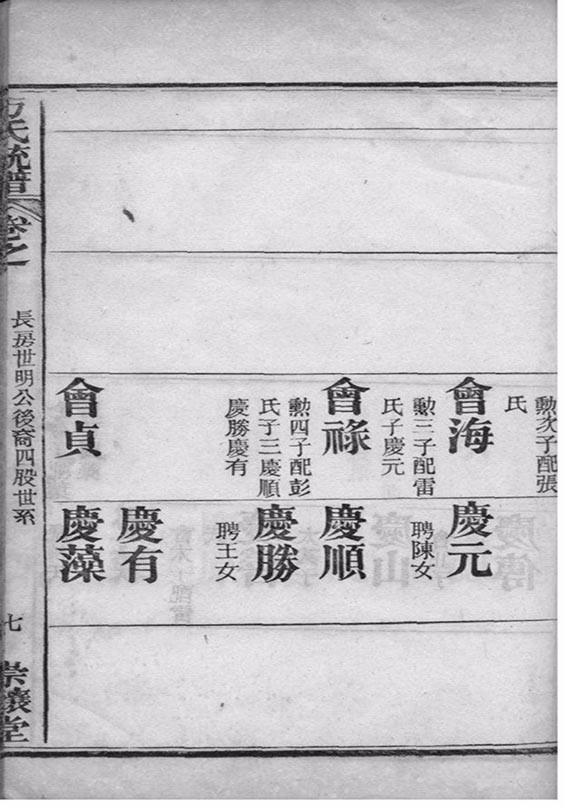 勲次子配張
氏
會海
勲三子配雷
氏子慶元
會祿
勲四子配彭
氏子三慶順
慶勝慶有
會貞
慶元
聘陳女
慶順
慶勝
聘王女
慶有
慶藻
方氏統譜
卷之一
長房世明公後裔四股世系
七
堂